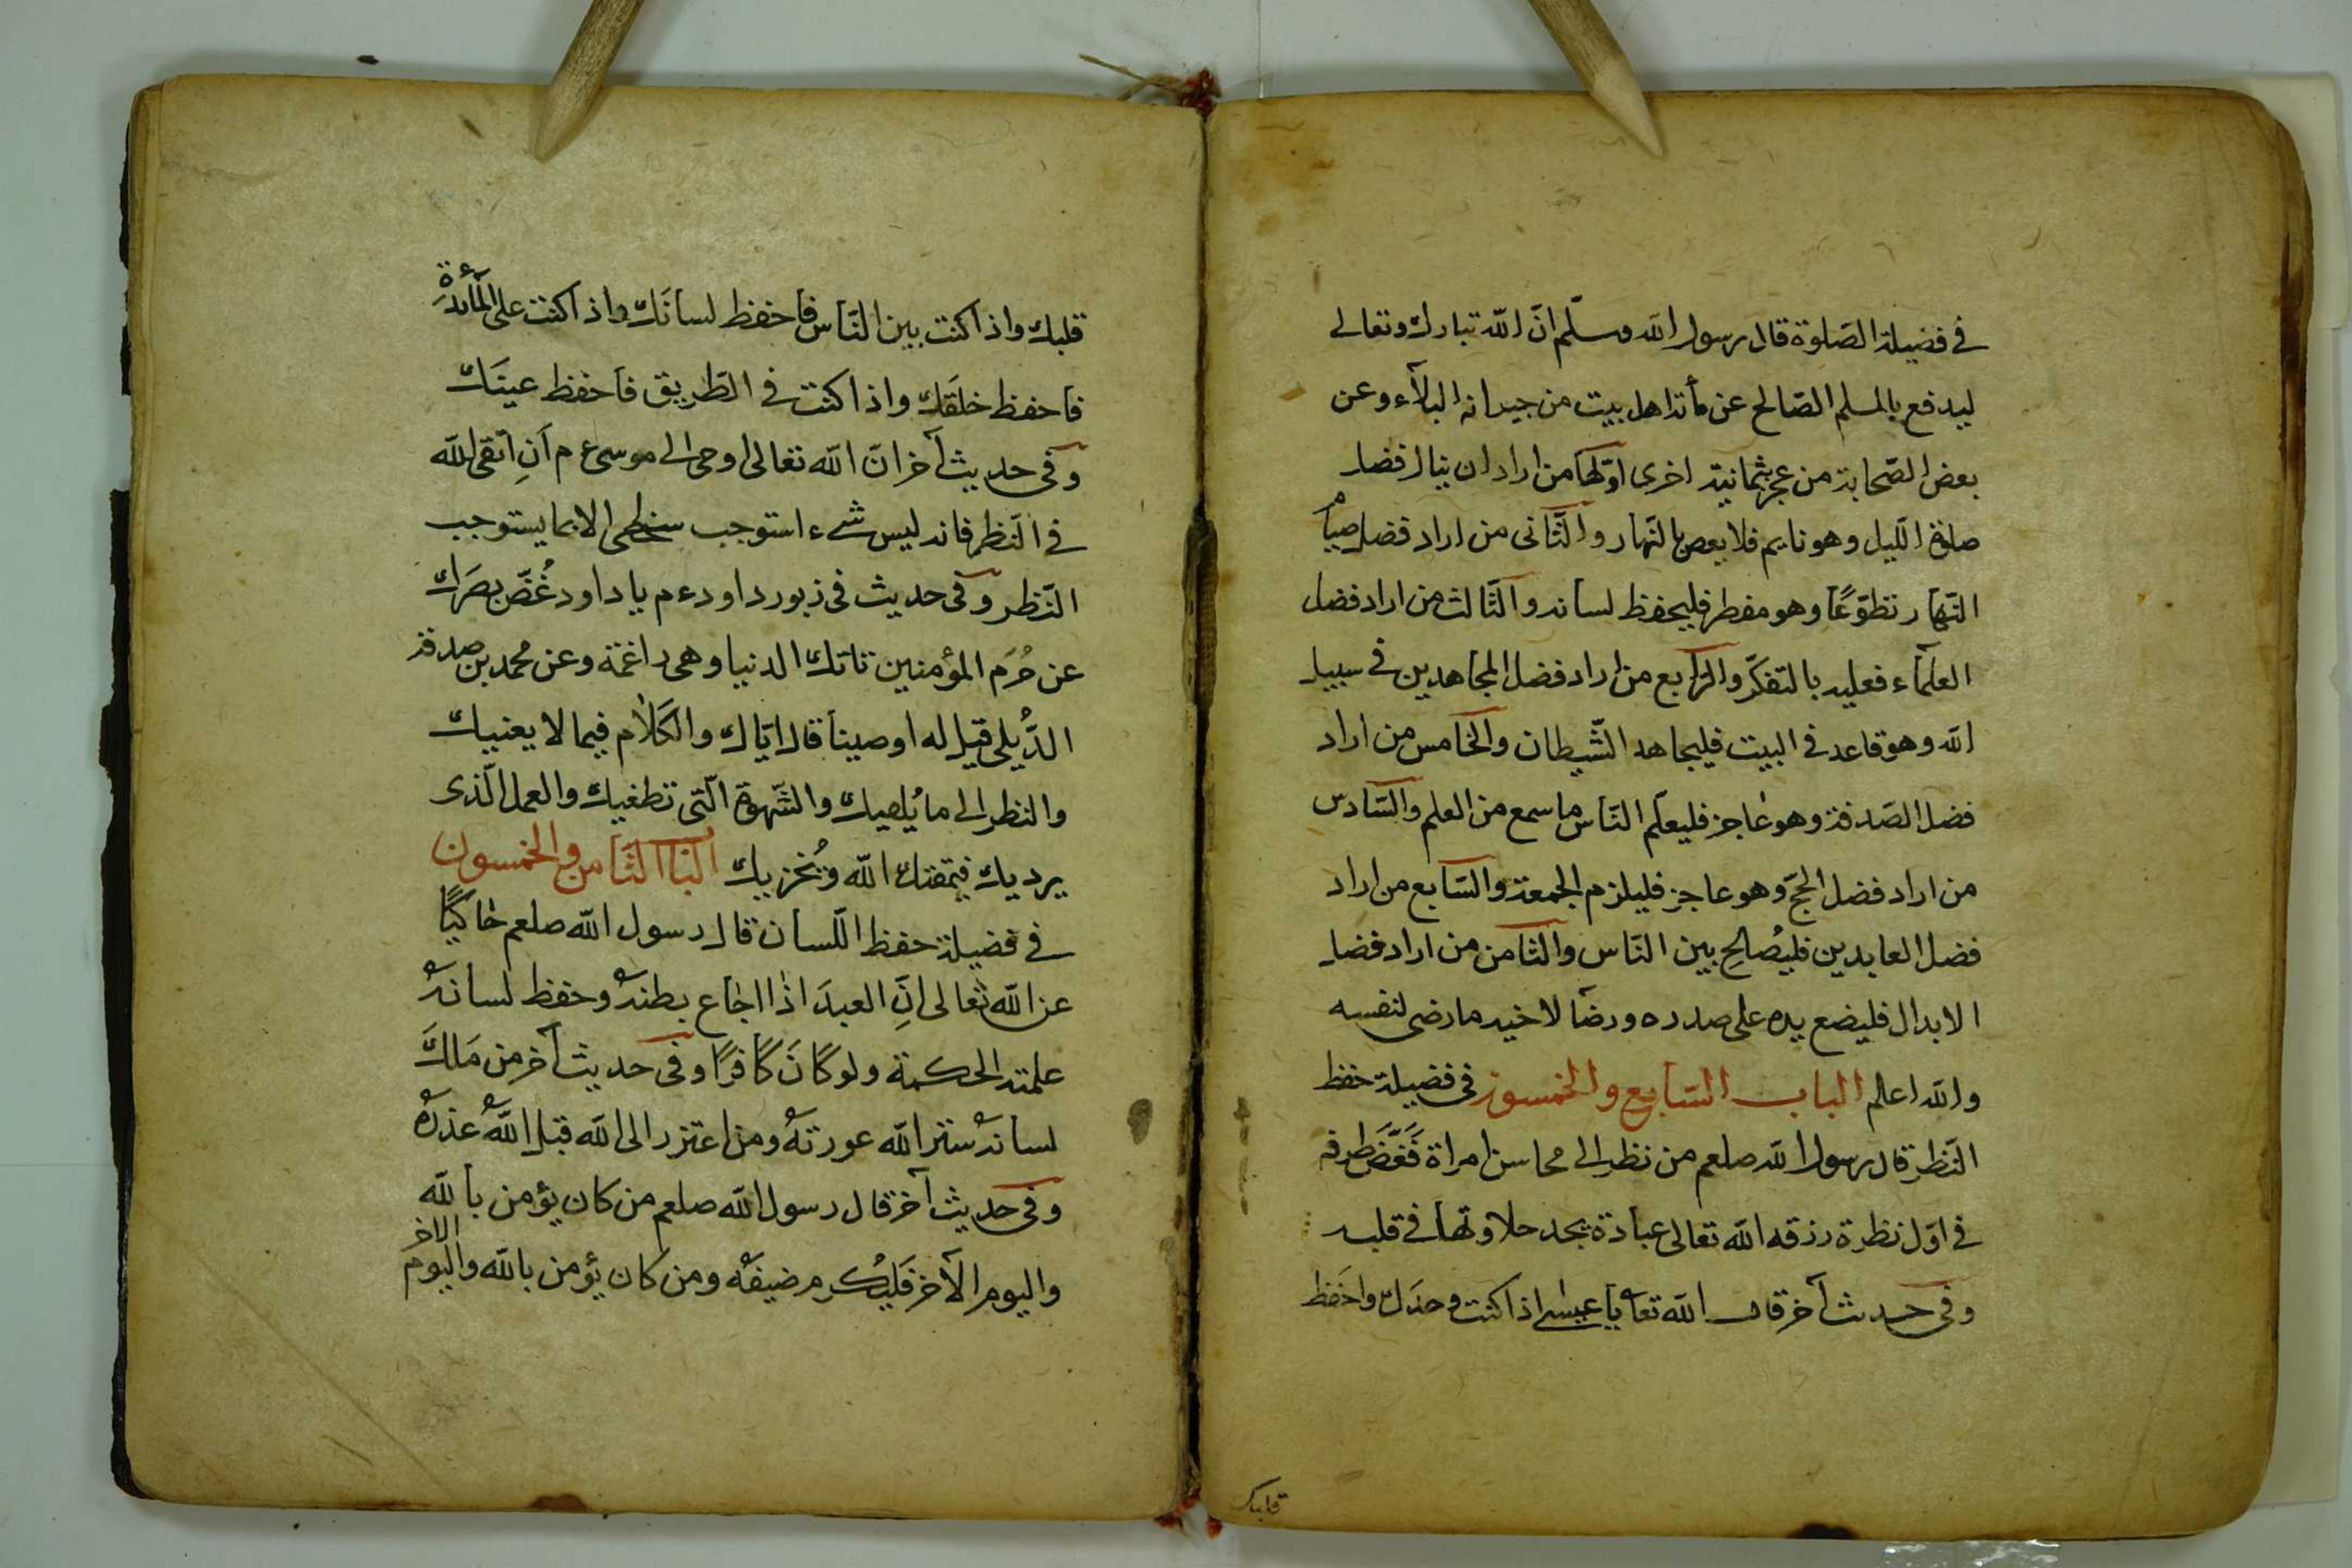 في فضيلة الصّلوة قال رسول الله وسلّم انّ الله تبارك وتعالى
ليدفع بالمسلم الصّالح عن مأئة اهل بيت من جيرانه البلآء وعن
بعض الصّحابة من عجز بثمانية اخرى اوّلها من اراد ان ينال فضل
صلوة اللّيل وهو نايم فلا يعص بالنّهار والثّانى من اراد فضل صيام
النّهار تطوّعًا وهو مفطر فليحفظ لسانه والثّالث من اراد فضل
العلمآء فعليه بالتفكّر والرّابع من اراد فضل المجاهدين في سبيل
الله وهو قاعد في البيت فليجاهد الشّيطان والخامس من اراد
فضل الصّدقة وهو عاجز فليعلّم النّاس ما سمع من العلم والسّادس
من اراد فضل الحجّ وهو عاجز فليلزم الجمعة والسّابع من اراد
فضل العابدين فليُصالح بين النّاس والثّامن من اراد فضل
الابدال فليضع يده على صدره ورضا لاخيه ما رضى لنفسه
والله اعلم الباب السّابع والخمسون في فضيلة حفظ
النّظر قال رسول الله صلعم من نظر الى محاسن امراة فَغَضَّ طرفه
في اوّل نظرة رزقه الله تعالى عبادة يجد حلاوتها في قلبه
وفى حديث آخر قال الله تعا يا عيسى اذا كنت وحدك واحفظ
قلبك
قلبك واذا كنت بين النّاس فاحفظ لسانك واذا كنت على المآئدة
فاحفظ خلقك واذا كنت في الطّريق فاحفظ عينَك
وفى حديث آخر انّ الله تعالى اوحى الى موسى ع م اَنِ اتّقى الله
في النّظر فانه ليس شىء استوجب سخطى الا بما يستوجب
النّظر وفى حديث في زبور داود ع م يا داود غُضّ بصرَك
عن حُرَم المؤمنين تاتك الدنيا وهى راغمة وعن محمد بن صدقة
الدُّيلى قيل له اوصينا قال ايّاك والكلام فيما لا يعنيك
والنظر الى ما يُلهيك والشّهوة الّتى تطغيك والعمل الّذى
يرديك فيمقتك الله ويُخزيك البا الثّامن والخمسون
في فضيلة حفظ اللّسان قال رسول الله صلعم حاكيًا
عن الله تعالى انّ العبدَ اذا اجاع بطنه وحفظ لسانه
علمته الحكمة ولو كانَ كافرًا وفى حديث آخر من مَلَكَ
لسانه ستر الله عورتهُ ومن اعتزر الى الله قبل اللهُ عذرهُ
وفى حديث آخر قال رسول الله صلعم من كان يؤمن بالله
واليوم الآخر فَليُكرم ضيفَه ومن كان يؤمن بالله واليوم الاخر